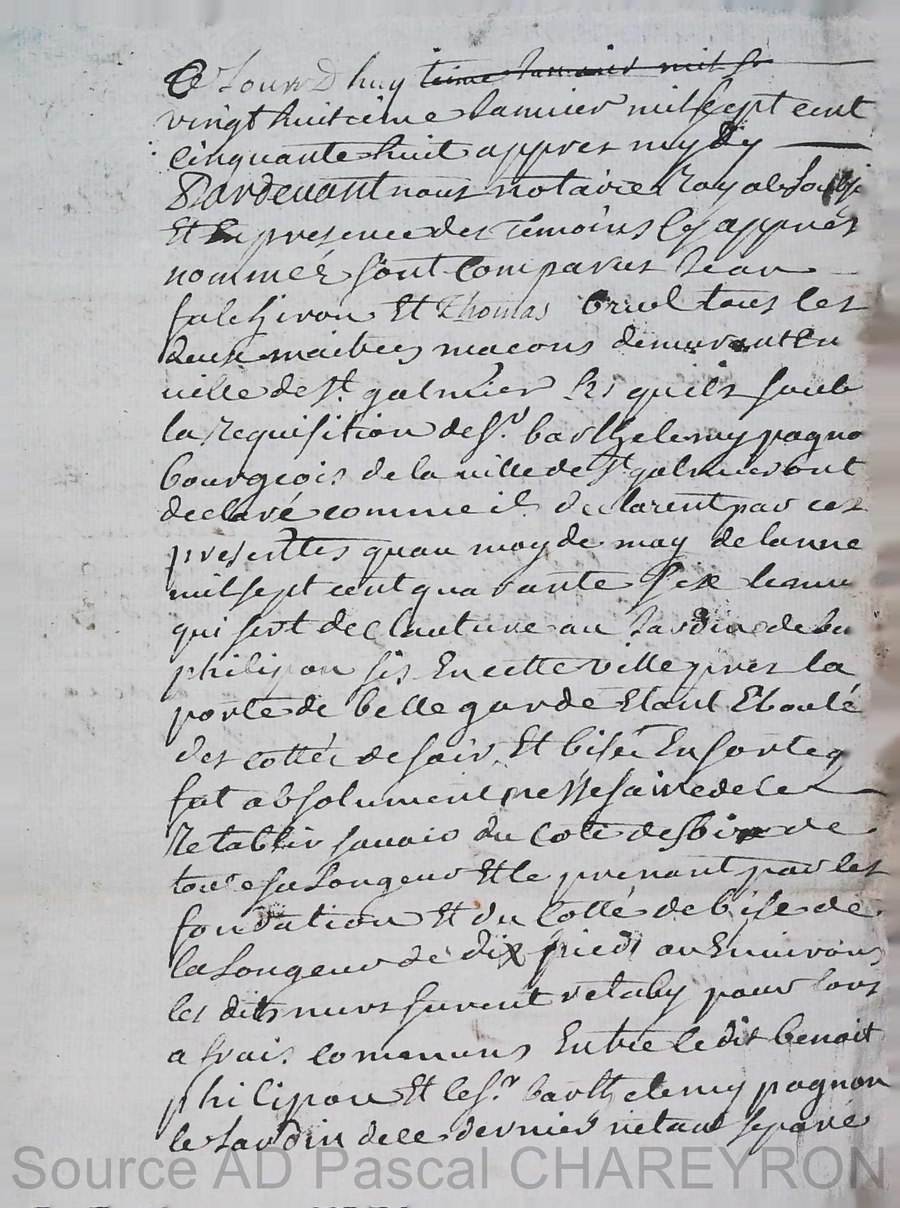 Ce Jourd huy tieme Janvier mil se
vingt huitieme Januier mil sept cent
cinquante huit appres mydy
Pardevant nous notaire Royal soubs
Et En presence des Temoins Cy appres
nommée sont comparus Jean
falchiron Et Thomas briol tous les
deux maitres macons demurant En
ville de St. galmier Les quels soub
la Requisition de Sr. barthelemy pagno
bourgeois de la ville de St galmier ont
declaré comme il declarent par ces
presenttes quau moy de may de lanne
mil sept cent quarante seze le mur
qui sert de Clauture au Jardin de be
philipon sis En cette ville pres la
porte de belle garde Etant Eboulé
des cottée de soir Et bise En sorte q
fut absolument nessesaire de le
Retablir sauoir du coté de soir de
toute sa Longeur Et le prenant par les
fondation Et du Cotté de bise de
la Longeur de dix pieds ou Enuirons
les dits murs furent retably pour lors
a frais communs Entre le dit benoit
philipon Et le Sr. barthelemy pagnon
le Jardin de ce dernier netant separé
Source AD Pascal CHAREYRON